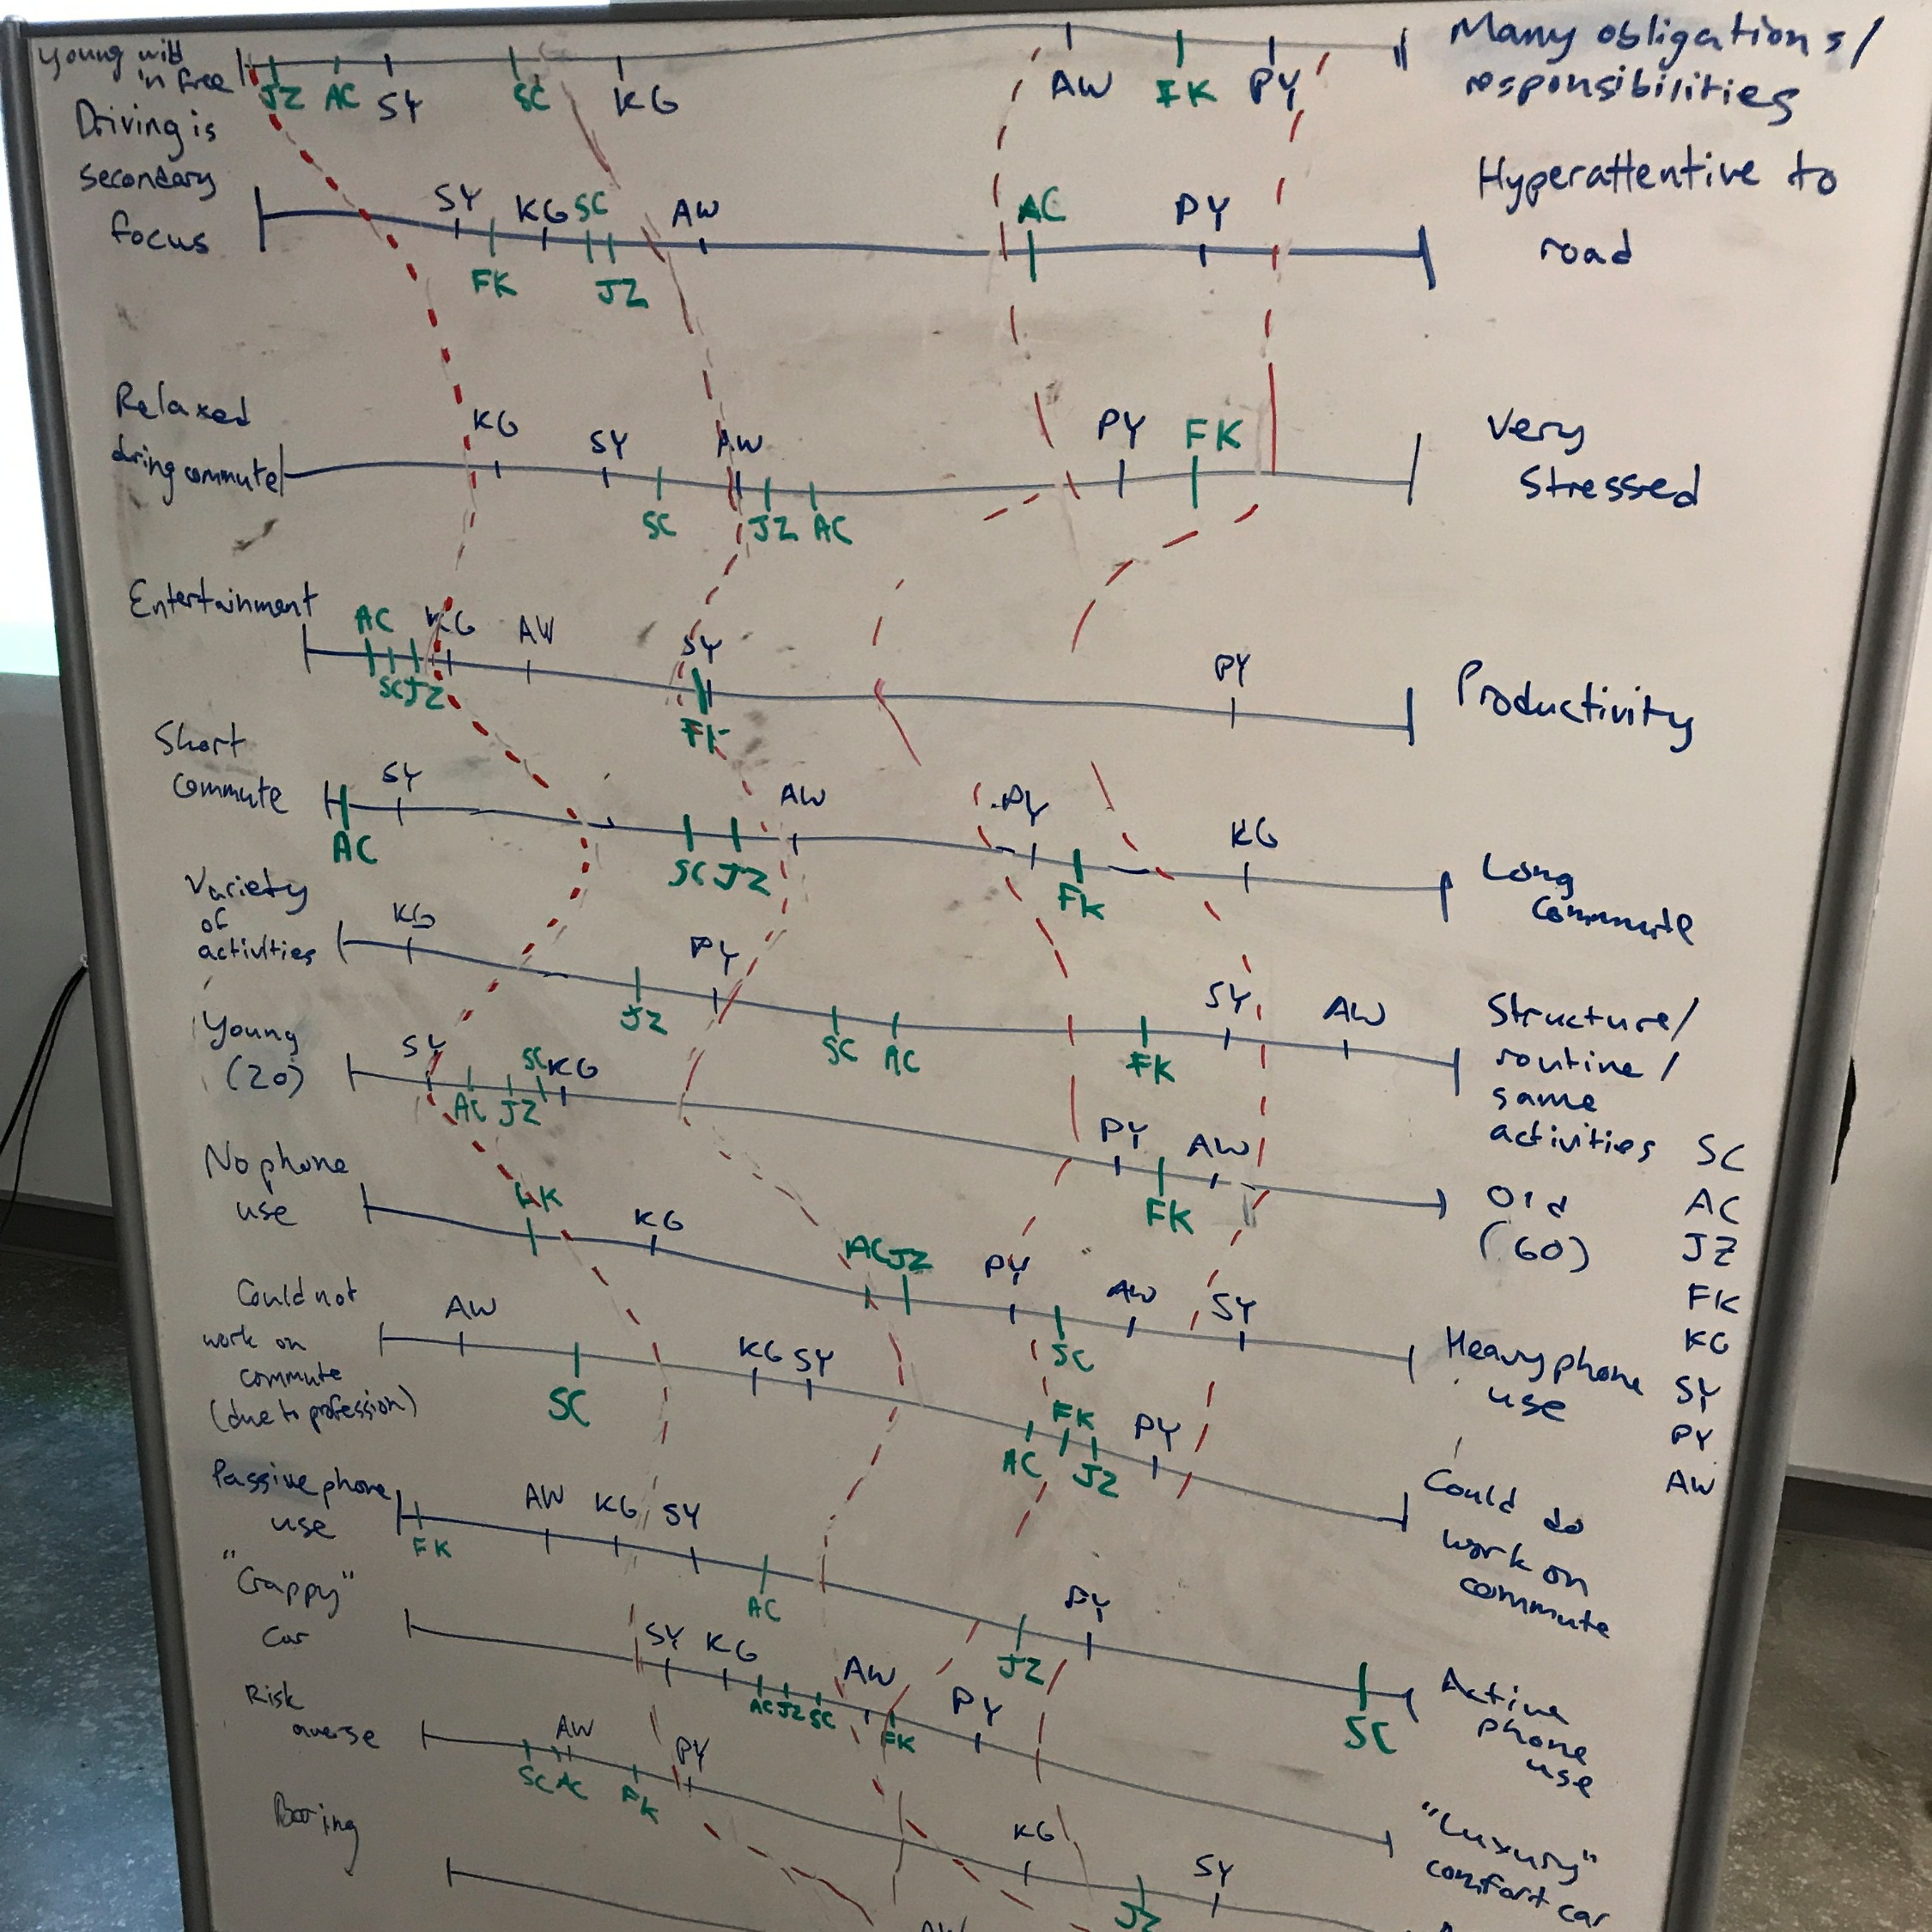 Young wild
'n free
JZ AC SY SC KG AW FK PY
Many obligations/
responsibilities
Driving is
secondary
focus
SY KG SC AW AC PY
FK JZ
Hyperattentive to
road
Relaxed
during commute
KG SY AW PY FK
SC JZ AC
Very
Stressed
Entertainment
AC KG AW SY PY
SC JZ FK
Productivity
Short
commute
SY AW PY KG
AC SC JZ FK
Long
Commute
Variety
of
activities
KG PY SY AW
JZ SC AC FK
Structure/
routine/
same
activities
Young
(20)
SY SC KG PY AW
AC JZ FK
Old
(60)
No phone
use
FK KG AC JZ PY AW SY
SC
Heavy phone
use
Could not
work on
commute
(due to profession)
AW KG SY FK PY
SC AC JZ
Could do
work on
commute
Passive phone
use
AW KG SY PY
FK AC JZ SC
Active
phone
use
"Crappy"
Car
SY KG AW PY
AC JZ SC FK
"Luxury"
comfort car
Risk
averse
AW PY KG SY
SC AC FK JZ
Boring
AW
SC
AC
JZ
FK
KG
SY
PY
AW